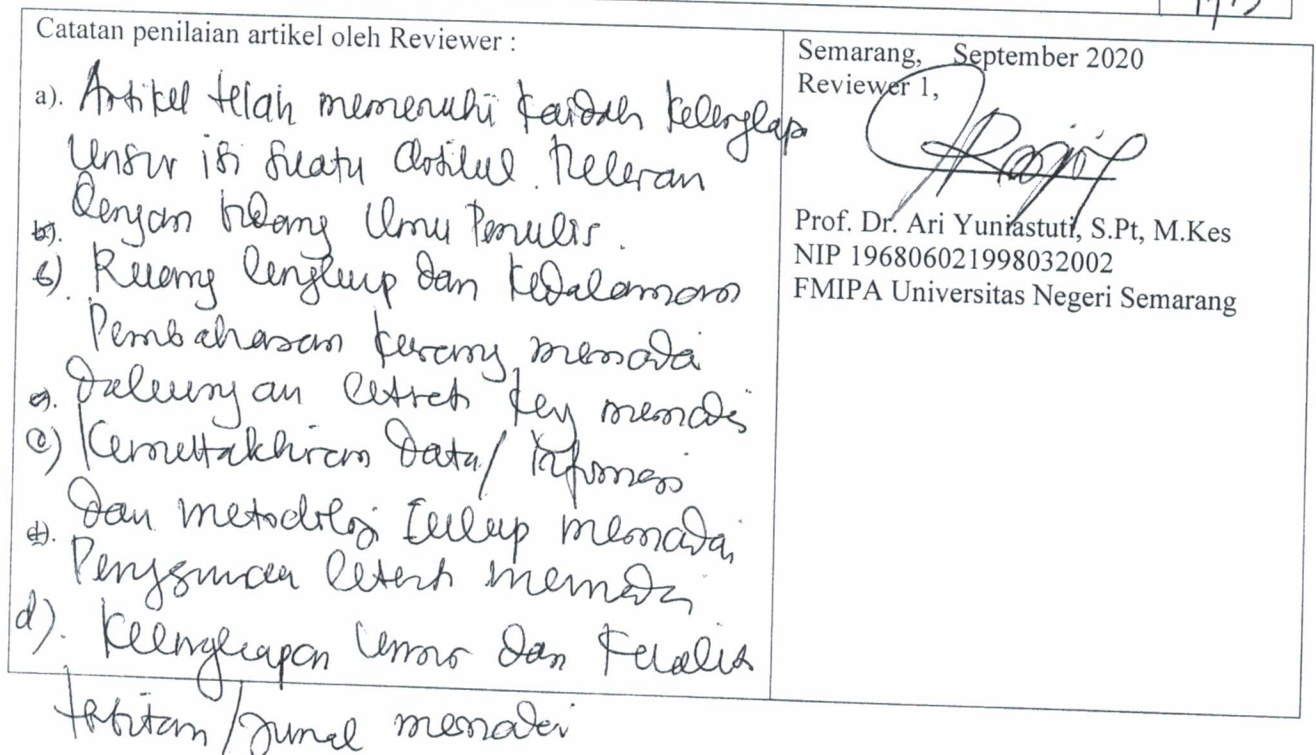 Catatan penilaian artikel oleh Reviewer :
a). Artikel telah memenuhi kaidah kelengkap
unsur isi suatu artikel. Relevan
dengan bidang ilmu Penulis.
b).
b) Ruang lingkup dan kedalaman
Pembahasan kurang memadai
dukungan
memadai
c) Kemutakhiran Data/ Informasi
dan metodologi cukup memadai,
d). Penggunaan memadai
d). Kelengkapan unsur dan kualitas
terbitan/jurnal memadai
Semarang, September 2020
Reviewer 1,
Prof. Dr. Ari Yuniastuti, S.Pt, M.Kes
NIP 196806021998032002
FMIPA Universitas Negeri Semarang